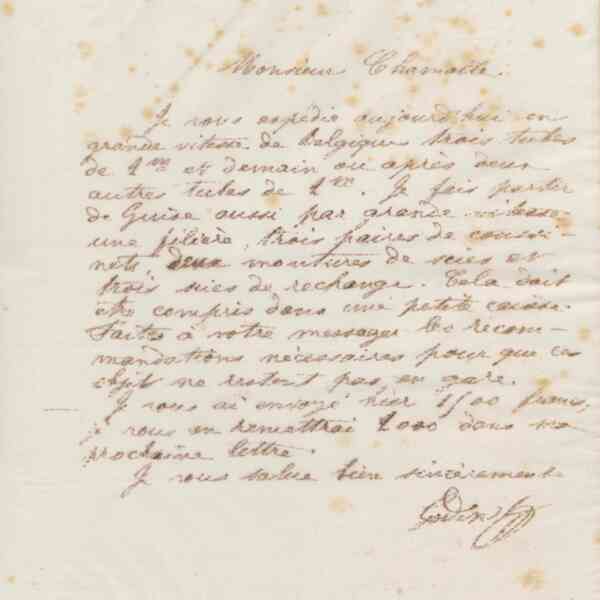 Monsieur Chamolle.
Je vous expédie aujourd'hui en
grande vitesse de Belgique trois tubes
de 2 m et demain ou après deux
autres tubes de 2 m. Je fais partir
de Guise aussi par grande vitesse
une filière, trois paires de coussi-
nets, deux montures de scies et
trois scies de rechange. Cela doit
être compris dans une petite caisse.
Faites à votre messager les recom-
mandations nécessaires pour que ces
objets ne restent pas en gare.
Je vous ai envoyé hier 1500 francs,
je vous en remettrai 2000 dans ma
prochaine lettre.
Je vous salue bien sincèrement
Godin